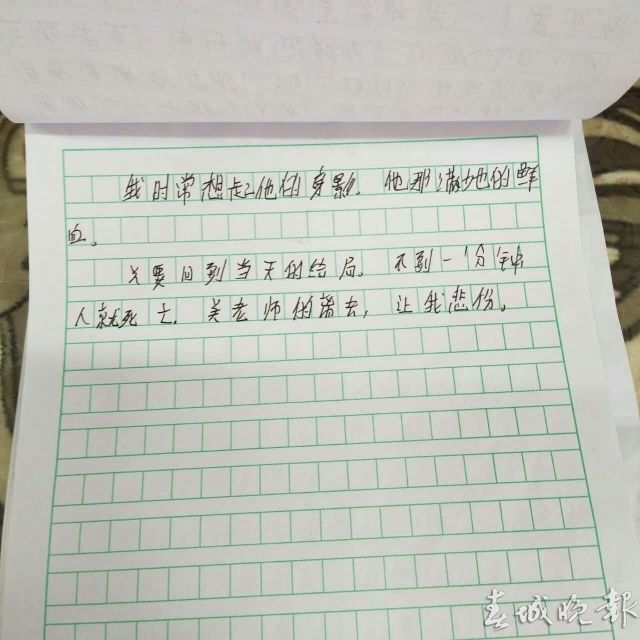 我时常想起他的身影。他那满地的鲜
血。
只要回到当天的结局。不到一分钟
人就死亡。吴老师的离去，让我悲伤。
春城晚报